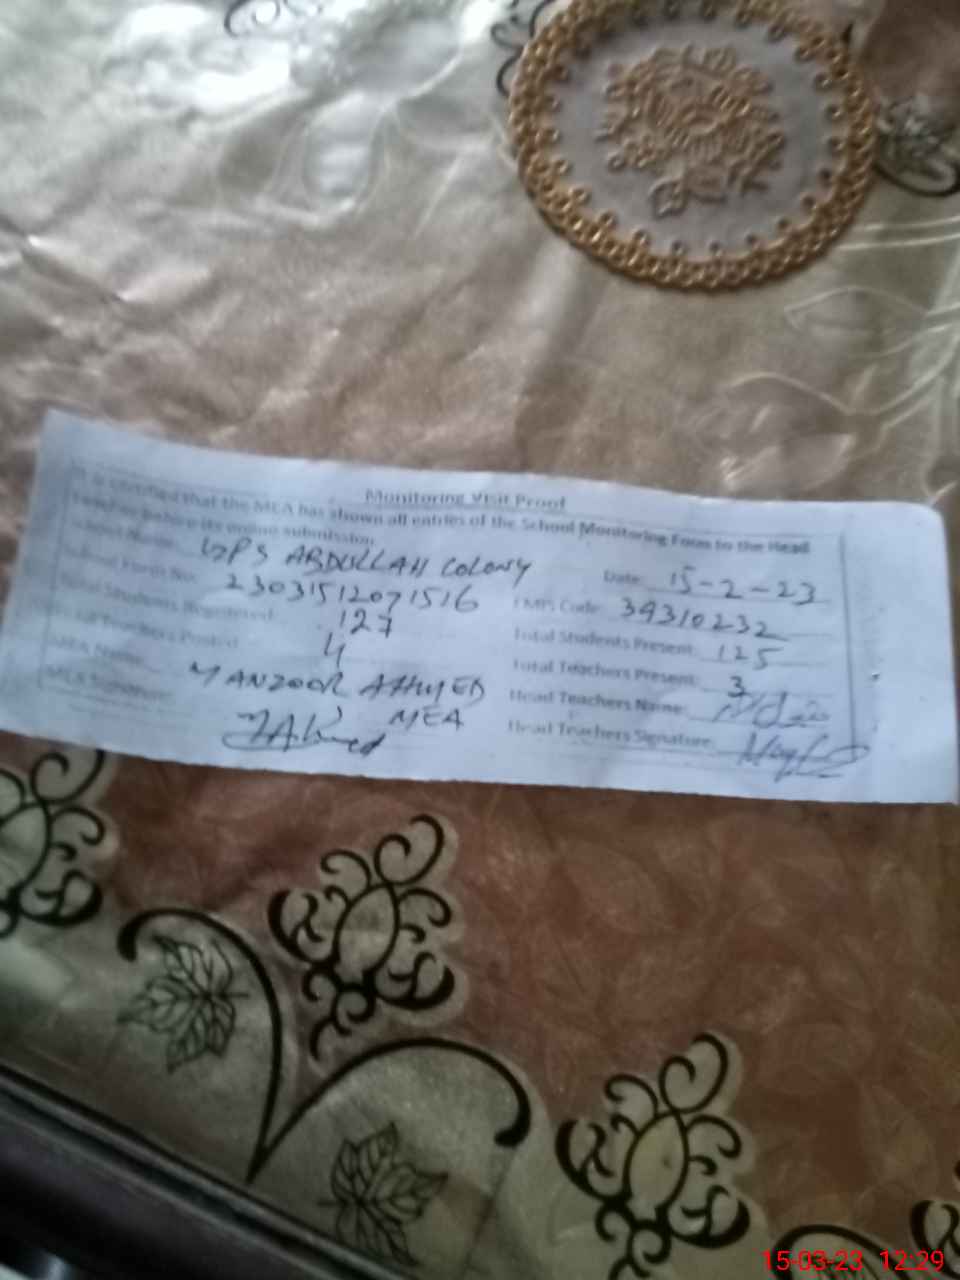 Monitoring Visit Proof
It is certified that the MEA has shown all entries of the School Monitoring Form to the Head
Teacher before its online submission.
School Name: GPS ABDULLAH COLONY Date: 15-2-23
School Form No: 23031512071516 EMIS Code: 39310232
Total Students Registered: 127 Total Students Present: 125
Total Teachers Posted: 4 Total Teachers Present: 3
MEA Name: MANZOOR AHMED Head Teachers Name:
MEA Signature: MEA Head Teachers Signature:
15-03-23 12:29